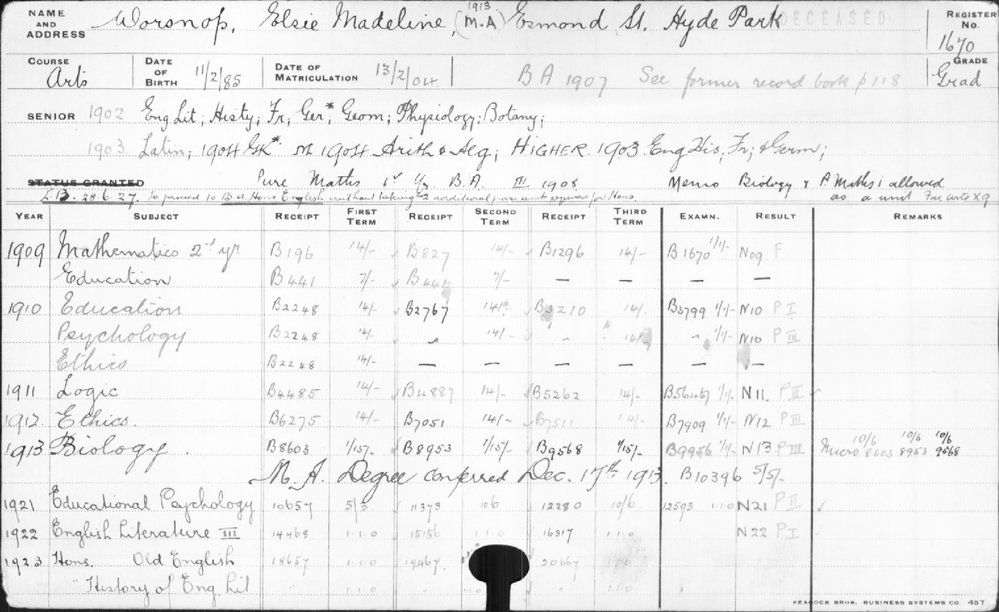 NAME AND ADDRESS Worsnop, Elsie Madeline, (M.A) 1913 Esmond St. Hyde Park DECEASED REGISTER No. 1670
COURSE Arts DATE OF BIRTH 11/2/85 DATE OF MATRICULATION 13/2/04 BA 1907 See former record book p 118 GRADE Grad
SENIOR 1902 Eng Lit; Histy; Fr; Ger*; Geom; Physiology; Botany;
1903 Latin; 1904 Gk* M 1904 Arith & Alg; HIGHER 1903 Eng His; Fr; & Germ;
STATUS GRANTED Pure Maths 1st Yr B.A. III 1908 Memo Biology & P. Maths i allowed
28.6.27. To proceed to B.A. Hons English without taking 2 additional units required for Hons. as a unit
YEAR SUBJECT RECEIPT FIRST TERM RECEIPT SECOND TERM RECEIPT THIRD TERM EXAMN. RESULT REMARKS
1909 Mathematics 2nd yr B196 14/- B827 14/- B1296 14/- B1670 1/1/- N09 F
Education B441 7/- B441 7/- — — — —
1910 Education B2248 14/- B2767 14/- B3210 14/- B3799 1/1/- N10 P I
Psychology B2248 14/- 14/- " 14/- " 1/1/- N10 P III
Ethics B2248 14/- — — — — — —
1911 Logic B4485 14/- B4887 14/- B5262 14/- 1/1/- N11. P II ✓
1912 Ethics. B6275 14/- B7051 14/- B7511 14/- B7909 1/1/- N12 P III
1913 Biology. B8603 1/15/- B8953 1/15/- B9568 1/15/- B9956 1/1/- N13 P III Micro 10/6 8603 10/6 8953 10/6 9568
M. A. Degree conferred Dec. 17th 1913. B10396 5/5/-
1921 Educational Psychology 10657 5/3 11373 10 6 12280 10/6 12593 1.1.0 N21 P II ✓
1922 English Literature III 14468 1.1.0 15156 1.1.0 16317 1.1.0 N22 P I
1923 Hons. Old English 18657 1.1.0 19467 20667 1.1.0
" History of Eng. Lit 1.1.0 1.1.0 1.1.0
PEACOCK BROS. BUSINESS SYSTEMS CO. 457